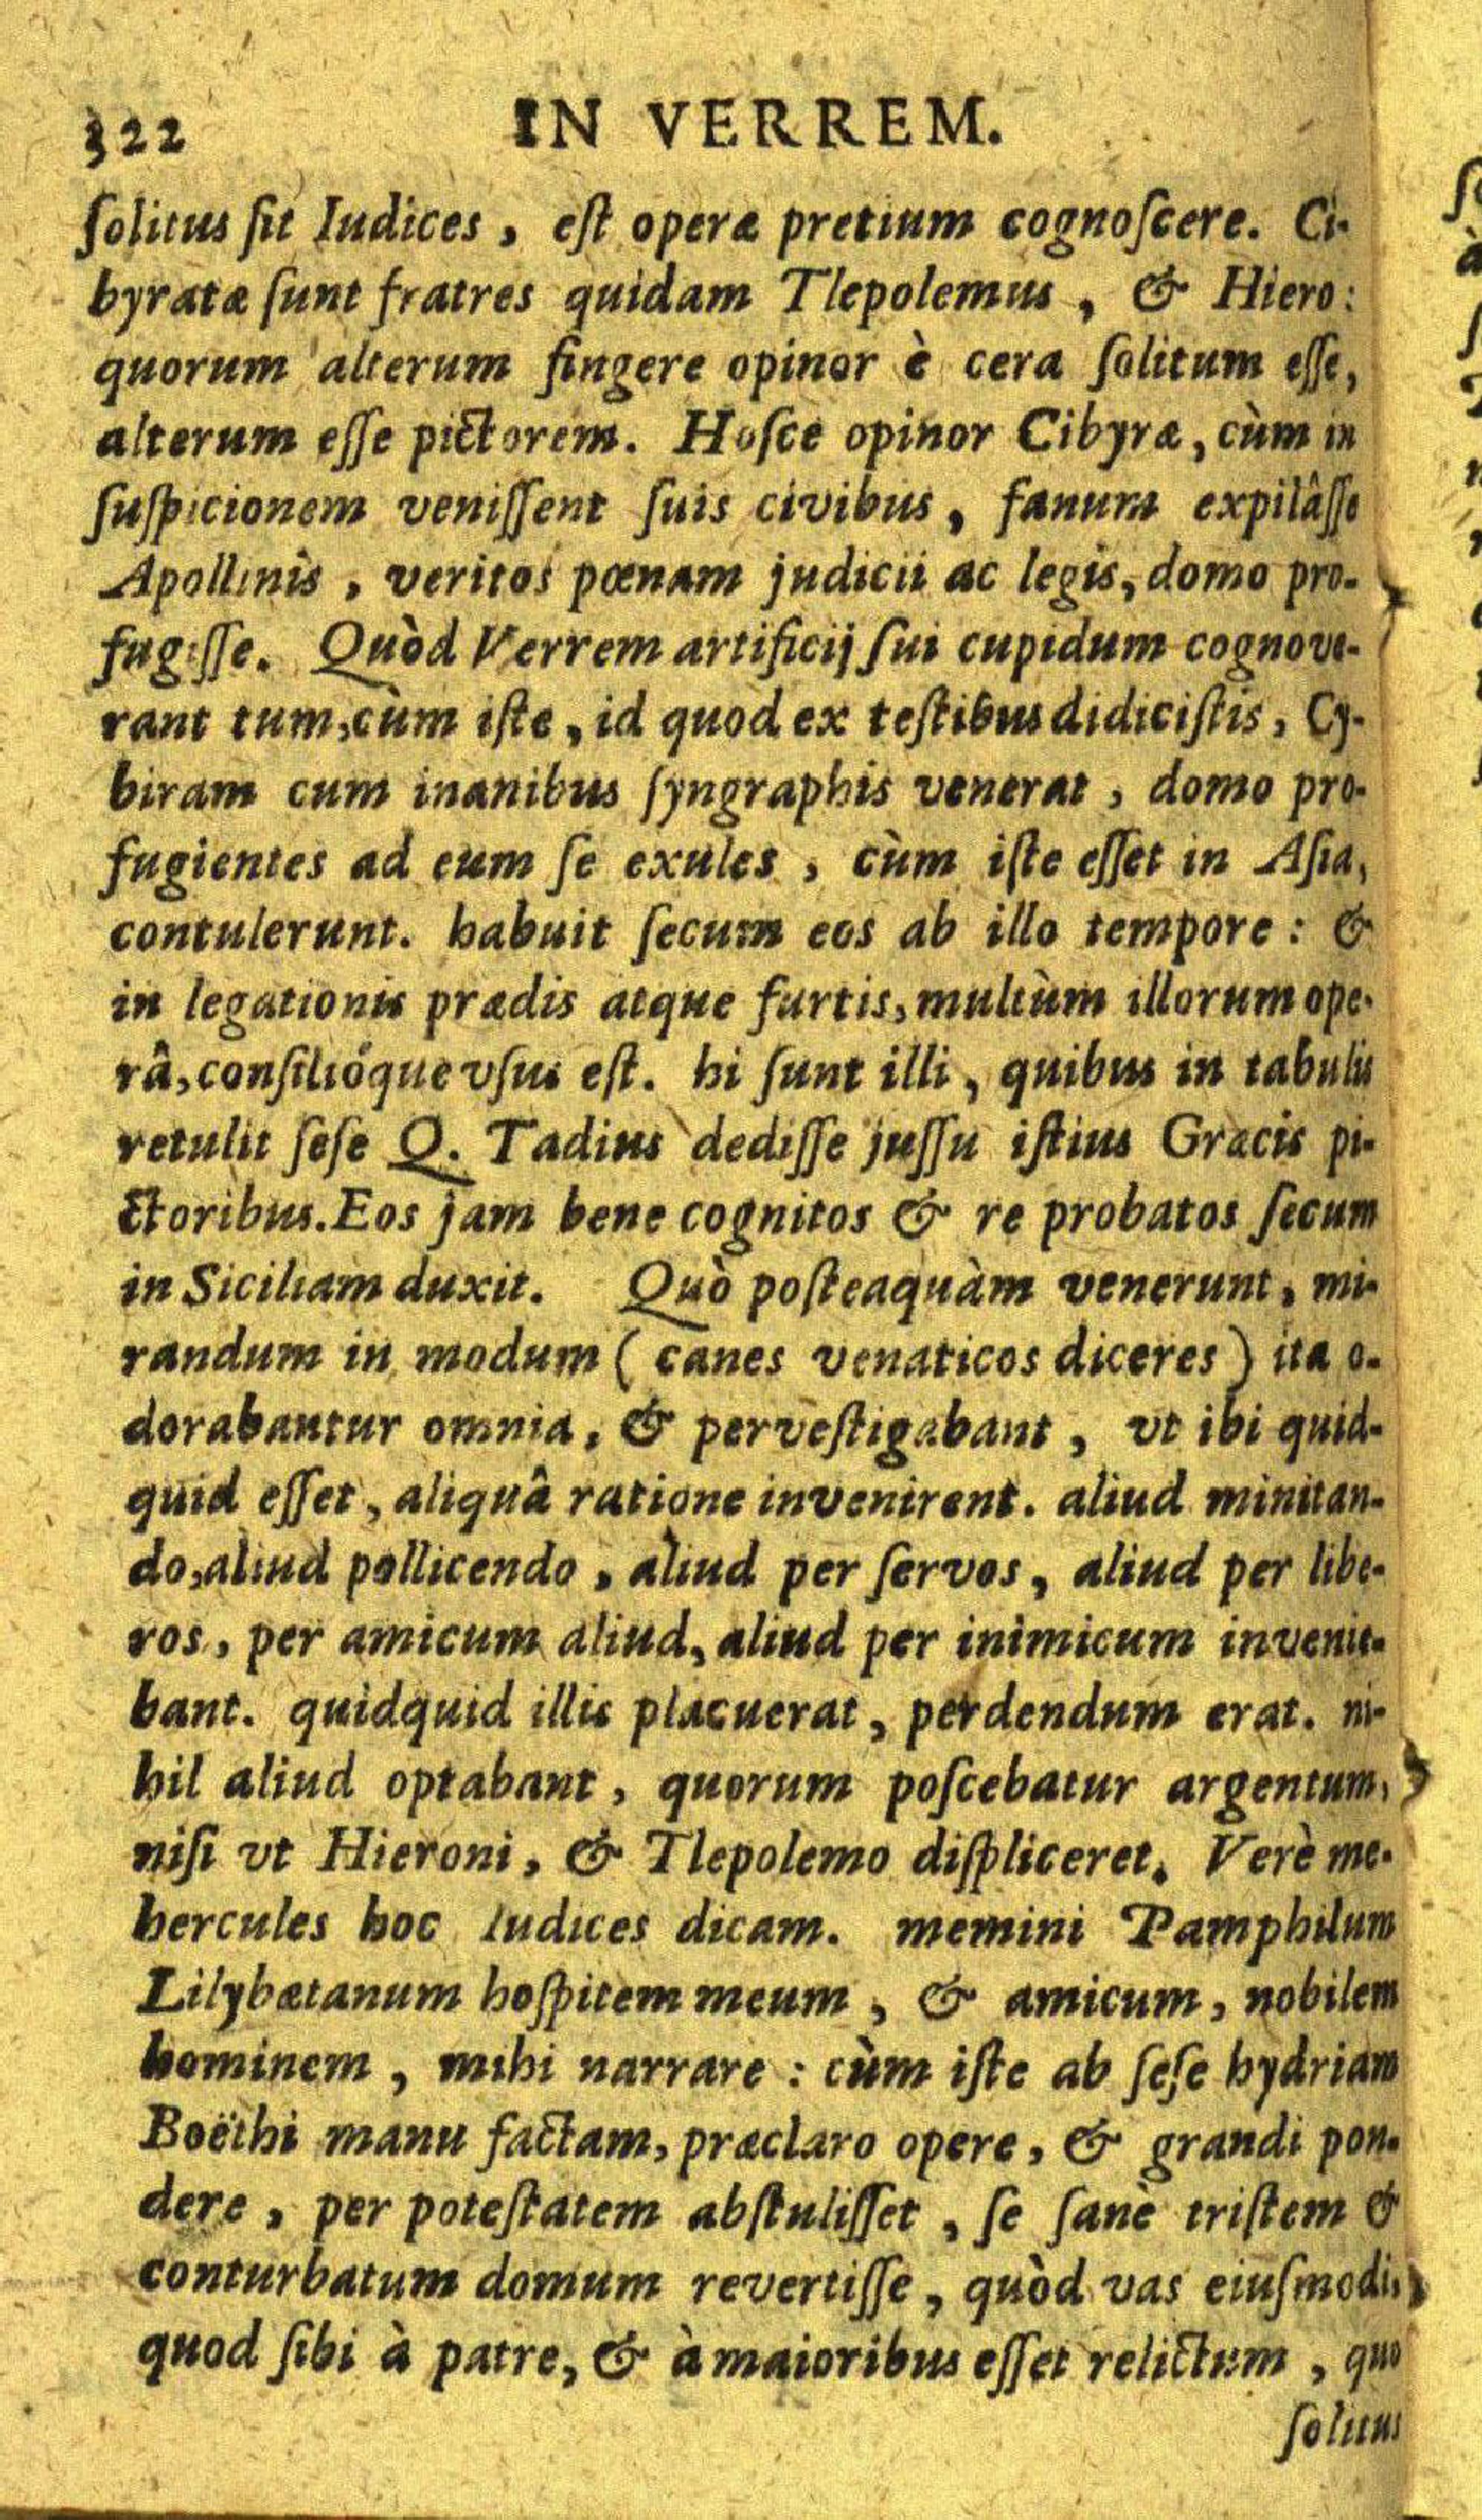 322 IN VERREM.
ſolitus ſit Iudices, eſt operæ pretium cognoſcere. Ci-
byratæ ſunt fratres quidam Tlepolemus, & Hiero:
quorum alterum fingere opinor è cera ſolitum eſſe,
alterum eſſe pictorem. Hoſce opinor Cibyræ, cùm in
ſuſpicionem veniſſent ſuis civibus, fanum expilâſſe
Apollinis, veritos pœnam judicii ac legis, domo pro-
fugiſſe. Quòd Verrem artificij ſui cupidum cognove-
rant tum, cùm iſte, id quod ex teſtibus didiciſtis, Cy-
biram cum inanibus ſyngraphis venerat, domo pro-
fugientes ad eum ſe exules, cùm iſte eſſet in Aſia,
contulerunt. habuit ſecum eos ab illo tempore: &
in legationis prædis atque furtis, multùm illorum ope-
râ, conſilióque vſus eſt. hi ſunt illi, quibus in tabulis
retulit ſeſe Q. Tadius dediſſe juſſu iſtius Græcis pi-
ctoribus. Eos jam bene cognitos & re probatos ſecum
in Siciliam duxit. Quò poſteaquàm venerunt, mi-
randum in modum (canes venaticos diceres) ita o-
dorabantur omnia, & perveſtigabant, vt ibi quid-
quid eſſet, aliquâ ratione invenirent. aliud minitan-
do, aliud pollicendo, aliud per ſervos, aliud per libe-
ros, per amicum aliud, aliud per inimicum invenie-
bant. quidquid illis placuerat, perdendum erat. ni-
hil aliud optabant, quorum poſcebatur argentum,
niſi vt Hieroni, & Tlepolemo diſpliceret. Verè me-
hercules hoc Iudices dicam. memini Pamphilum
Lilybætanum hoſpitem meum, & amicum, nobilem
hominem, mihi narrare: cùm iſte ab ſeſe hydriam
Boëthi manu factam, præclaro opere, & grandi pon-
dere, per poteſtatem abſtuliſſet, ſe ſanè triſtem &
conturbatum domum revertiſſe, quòd vas eiuſmodi,
quod ſibi à patre, & à maioribus eſſet relictum, quo
ſolitus